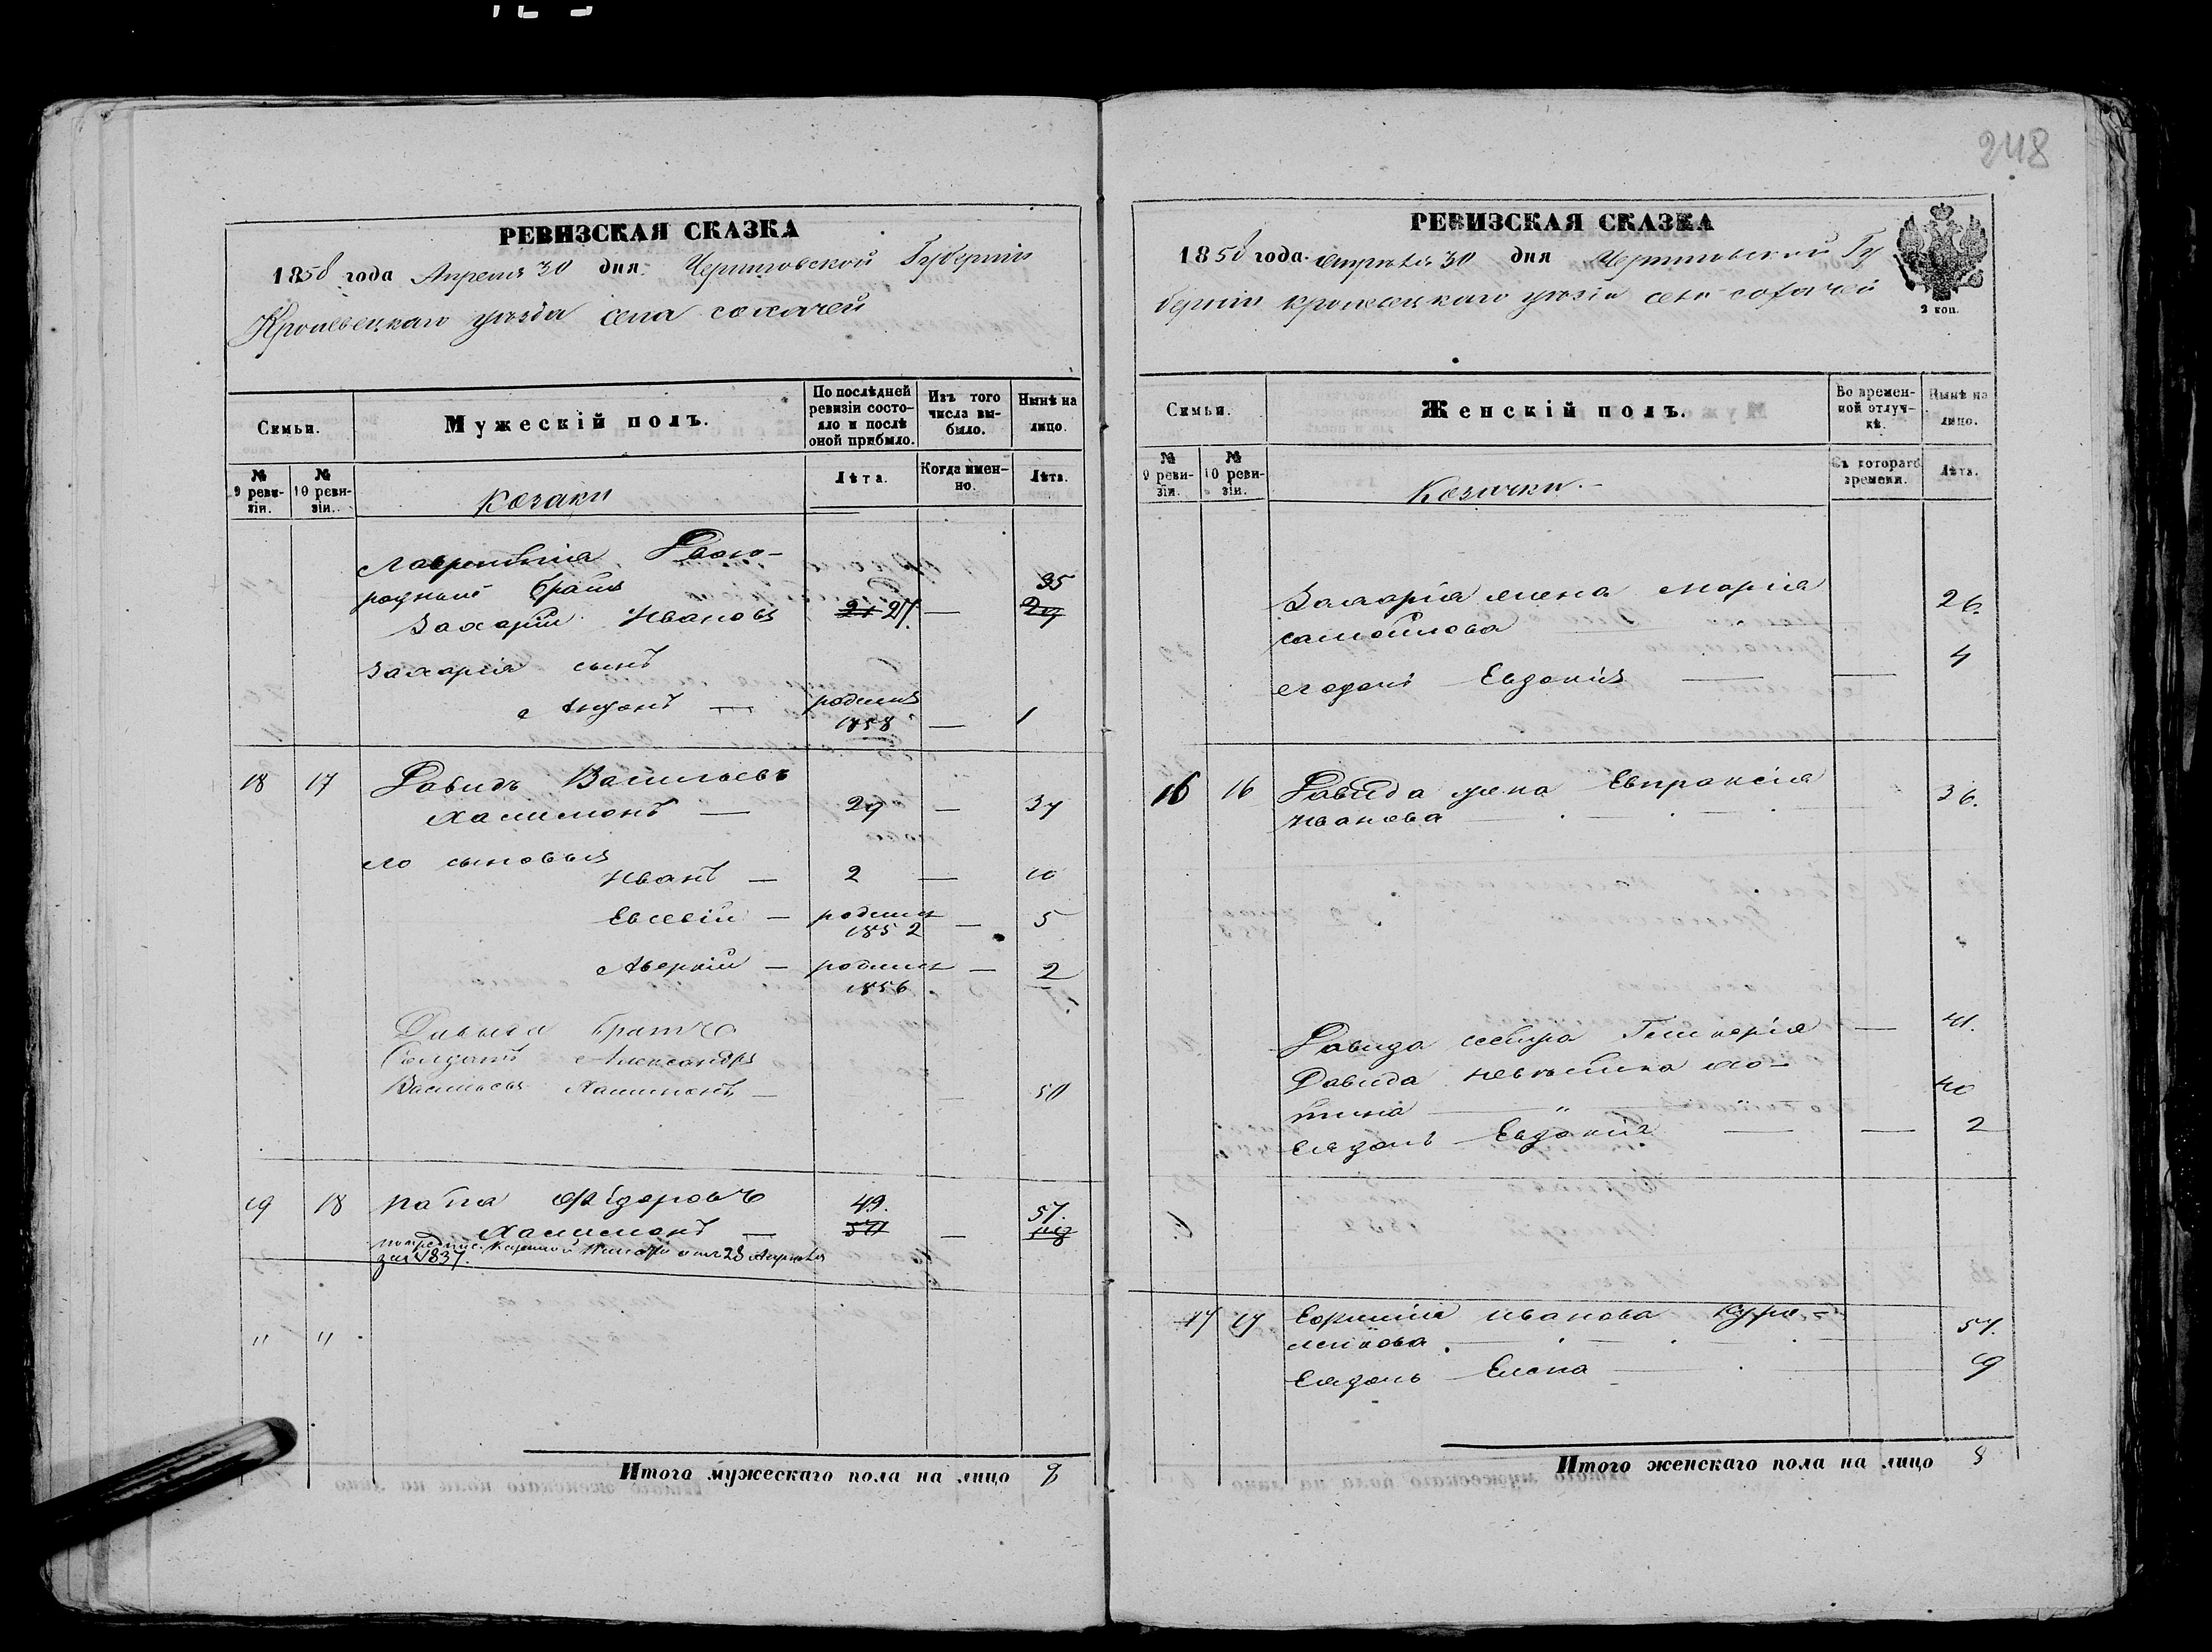 248
РЕВИЗСКАЯ СКАЗКА
1858 года Апреля 30 дня Черниговской Губерніи
Кролевецкаго уезда села сохачей
Семьи.
Мужескій полъ.
По послѣдней ревизіи состояло и послѣ оной прибыло.
Изъ того числа выбыло.
Нынѣ на лицо.
№ 9 ревизіи.
№ 10 ревизіи.
козаки
Лѣта.
Когда именно.
Лѣта.
Лаврентія Двою-
родный братъ 35
Захарій Ивановъ 21 27. — 29
Захарія сынъ
Антонъ — родился
1858 — 1
18 17 Давидъ Васильевъ
Халимонъ — 29 — 37
его сыновья
Иванъ — 2 — 10
Евсевій — родился
1852 — 5
Аверкій — родился — 2
1856
Давида братъ
Солдатъ Александръ
Васильевъ Халимонъ — — 50
19 18 49.
Халимонъ — 50 — 57.
28 Апреля
1837.
" "
Итого мужескаго пола на лицо 9
РЕВИЗСКАЯ СКАЗКА
1858 года апреля 30 дня Черниговской Гу
берніи кролевецкаго уезда села сохачей
2 коп.
Семьи.
Женскій полъ.
Во временной отлучкѣ.
Нынѣ на лицо.
№ 9 ревизіи.
№ 10 ревизіи.
Козачки. —
Съ котораго времени.
Лѣта.
Захарія жена Марія 26.
самойлова
его дочь Евдокія — — 4
16 16 Давида жена Евпраксія 36.
Иванова
Давида сестра Гликерія — 41.
Давида невѣстка 40
Ея дочь Евдокія — — 2
17 17 Евфимія Иванова 57.
Ея дочь Елена — 19
Итого женскаго пола на лицо 8